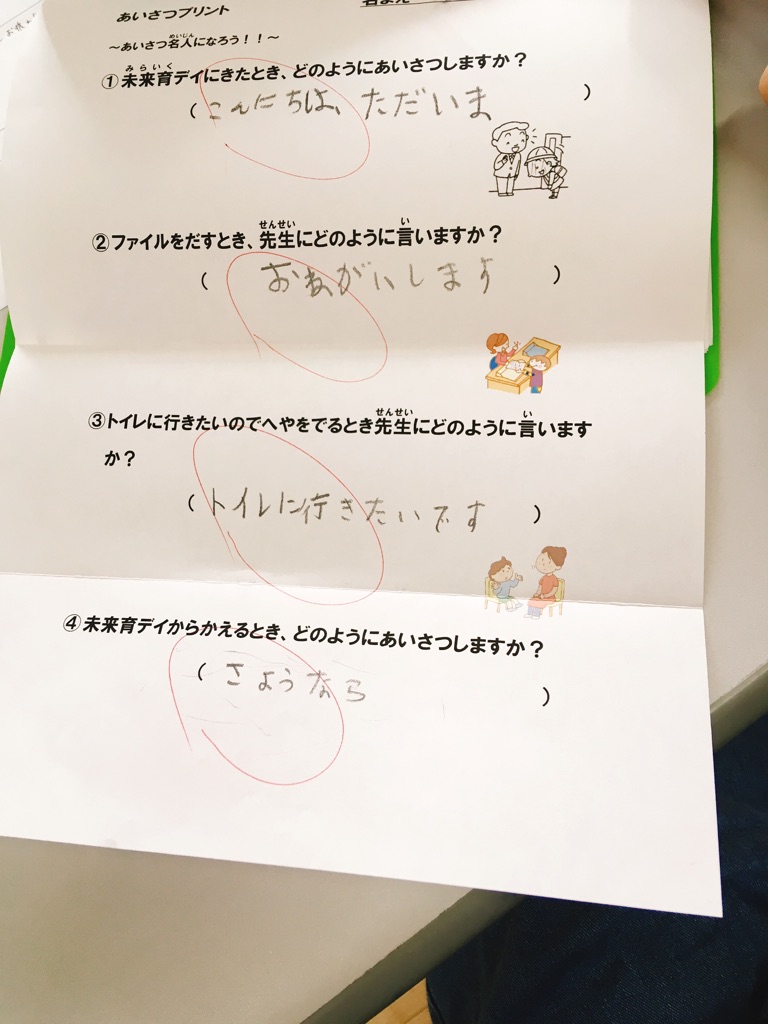 あいさつプリント
～あいさつ名人になろう！！～
①未来育デイにきたとき、どのようにあいさつしますか？
（こんにちは、ただいま）
②ファイルをだすとき、先生にどのように言いますか？
（おねがいします）
③トイレに行きたいのでへやをでるとき先生にどのように言います
か？
（トイレに行きたいです）
④未来育デイからかえるとき、どのようにあいさつしますか？
（さようなら）